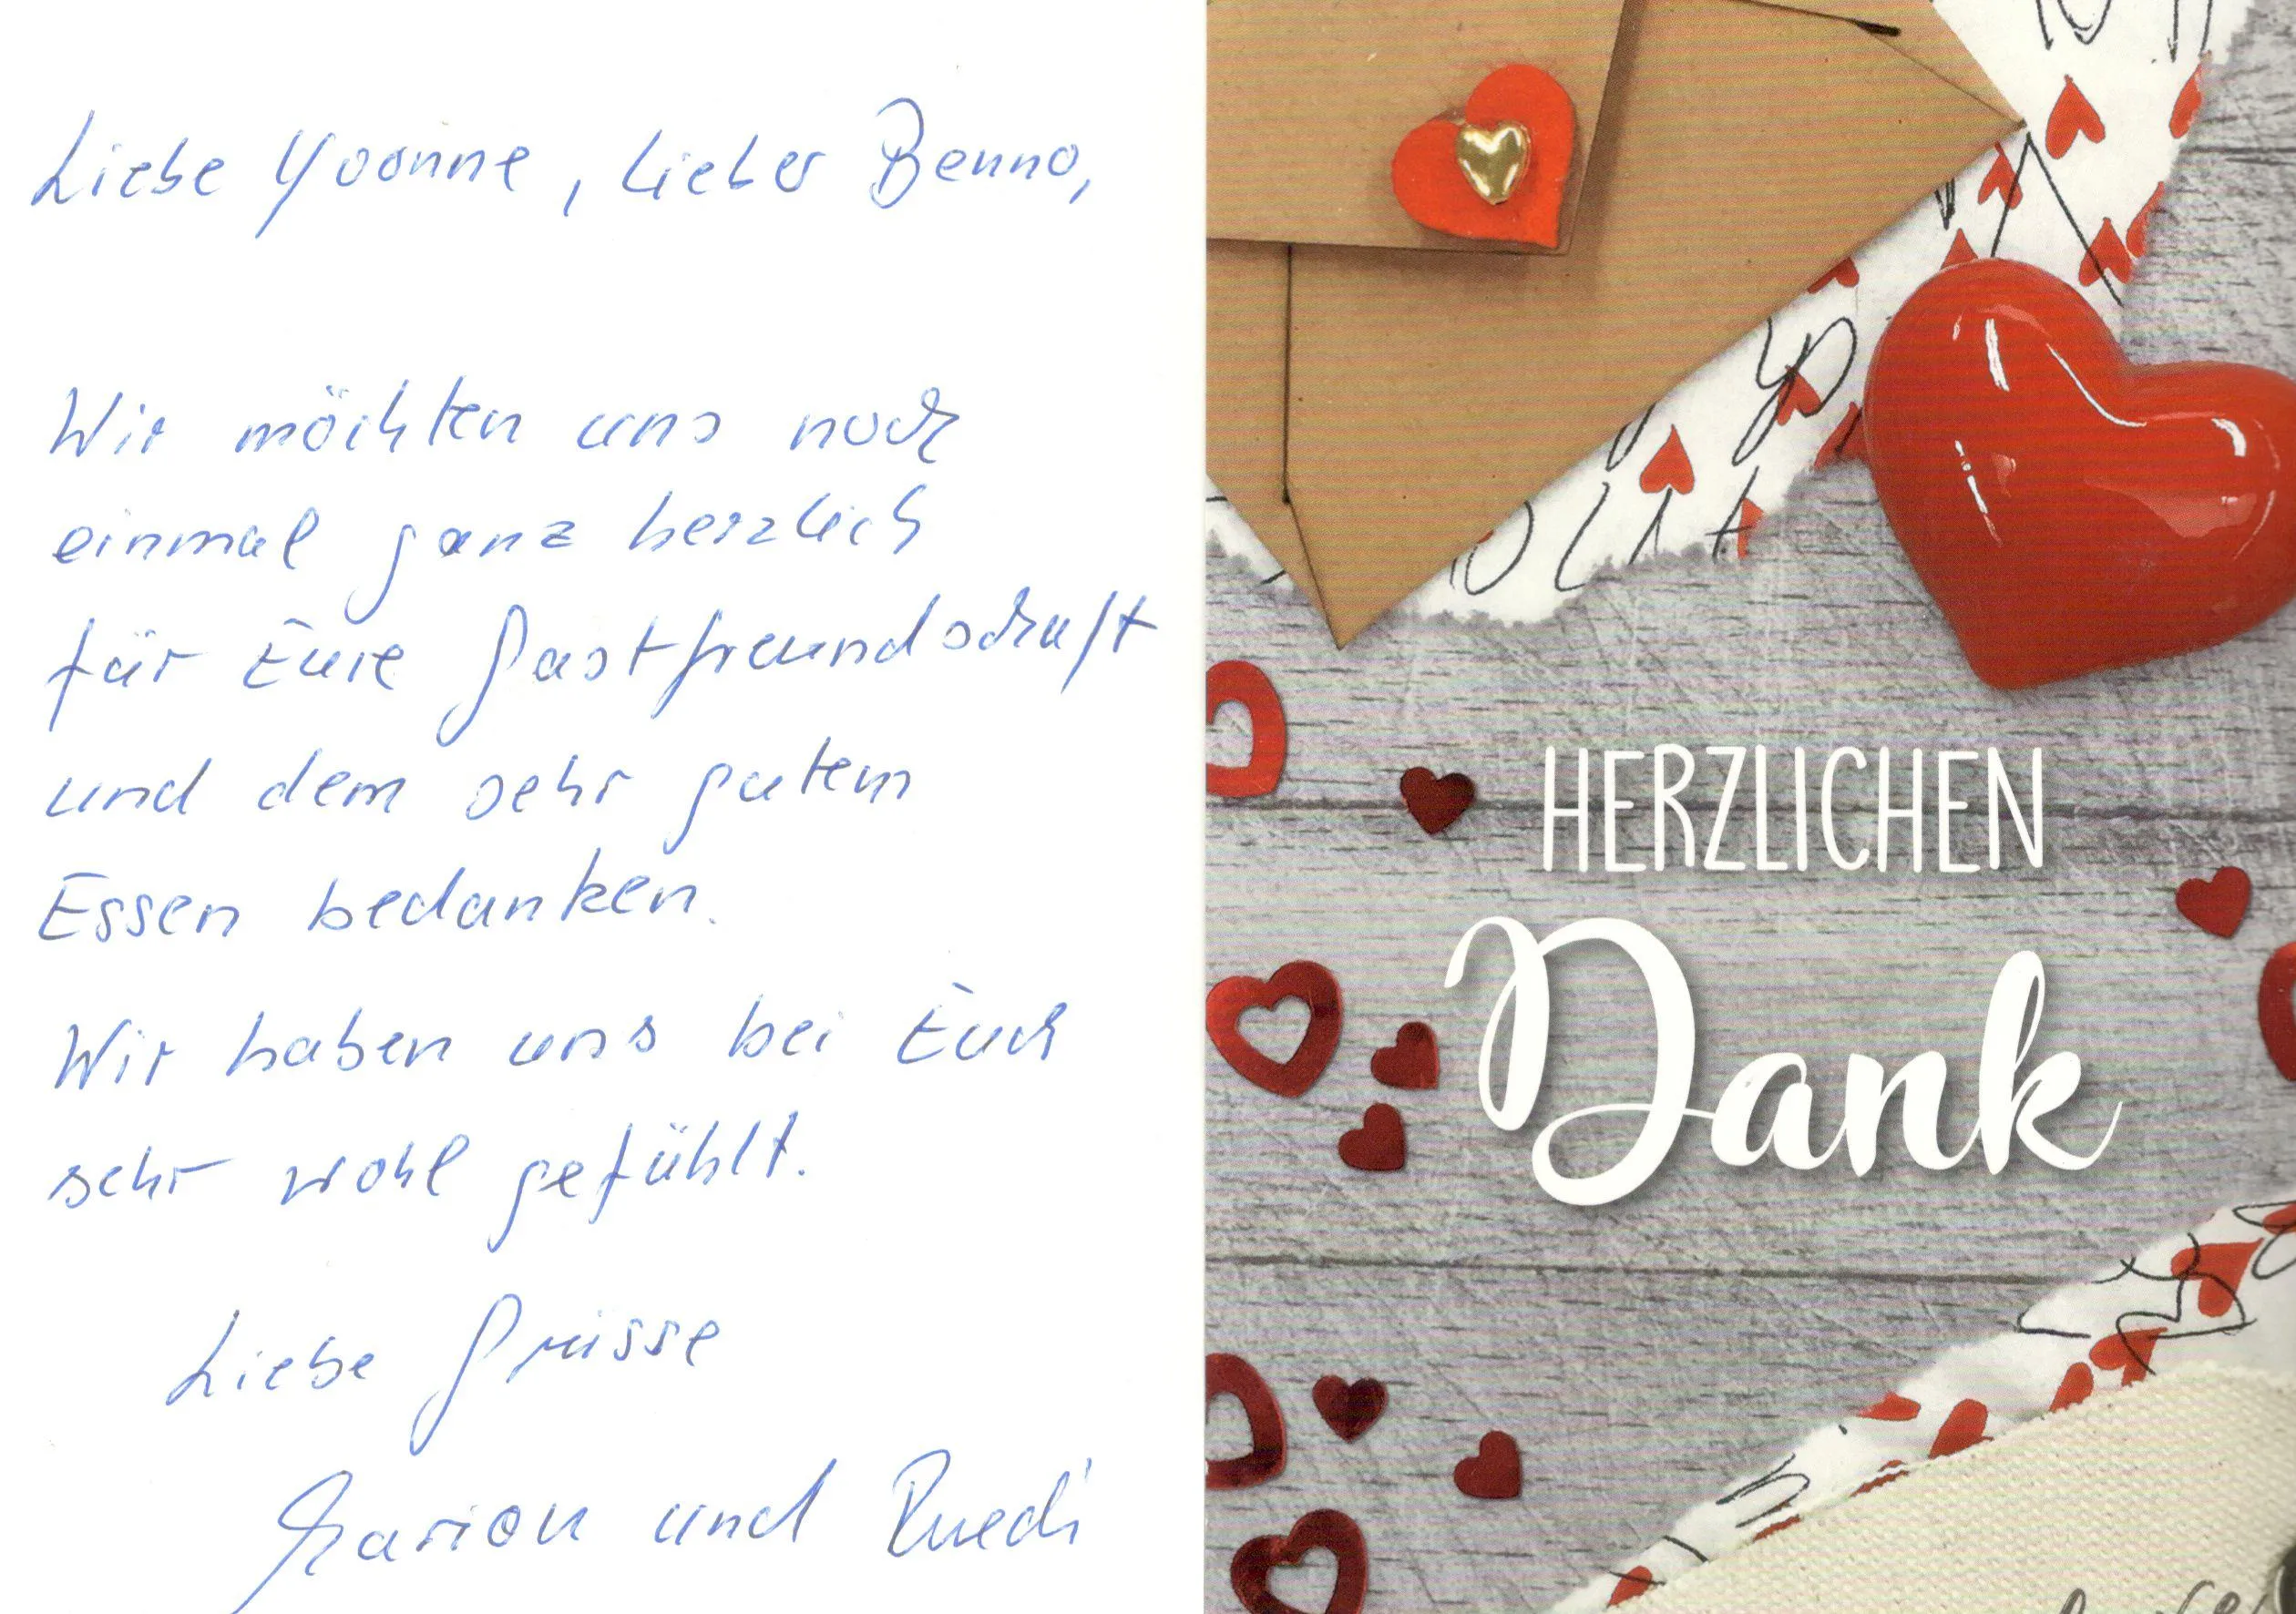 Liebe Yvonne, lieber Benno,
Wir möchten uns noch
einmal ganz herzlich
für Eure Gastfreundschaft
und dem sehr gutem
Essen bedanken.
Wir haben uns bei Euch
sehr wohl gefühlt.
Liebe Grüsse
Marion und Ruedi
HERZLICHEN
Dank